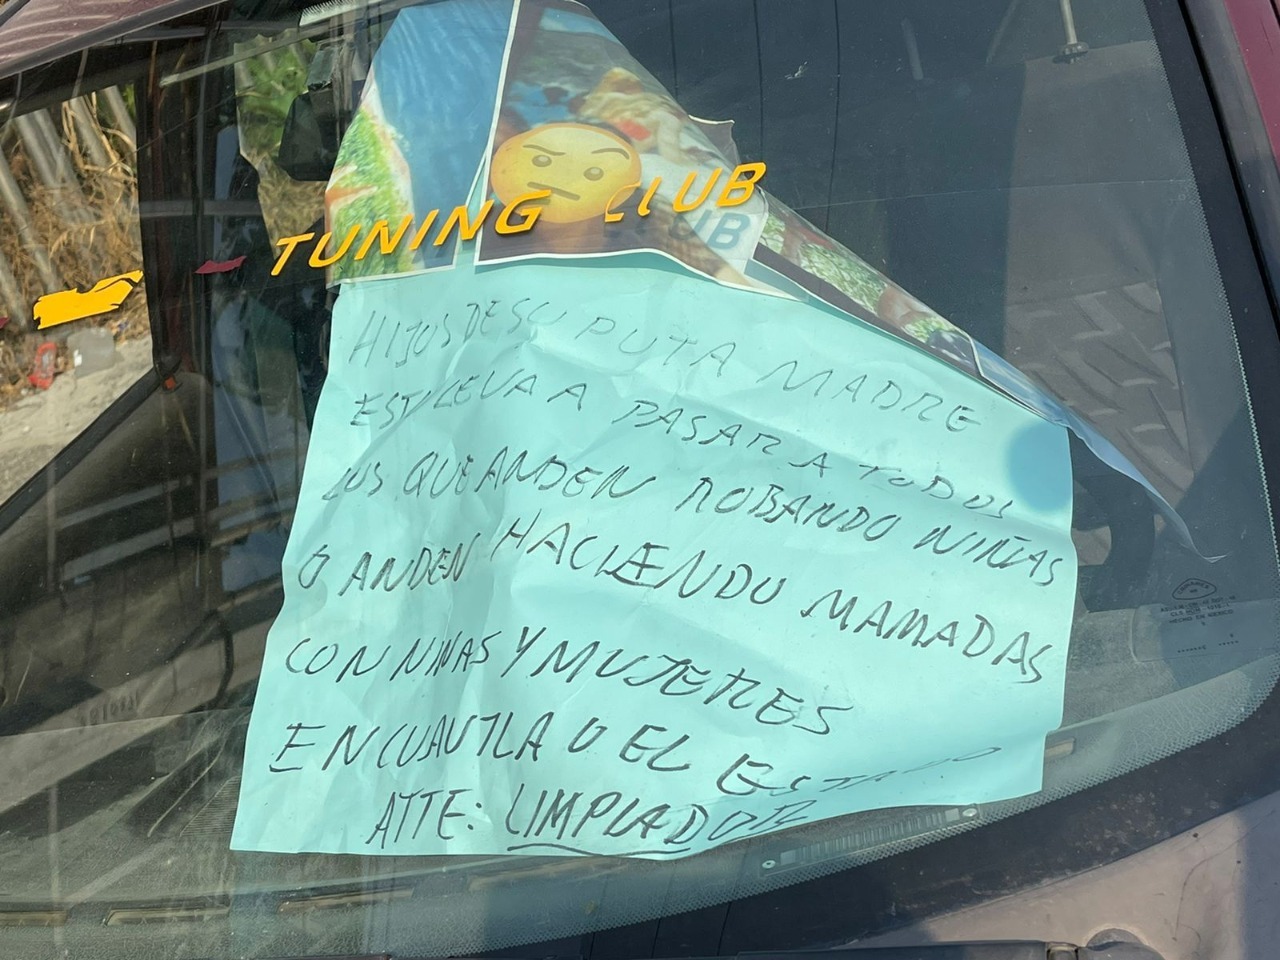 TUNING CLUB
UB
HIJOS DE SU PUTA MADRE
EST LEVA A PASAR A TODOS
LOS QUE ANDEN ROBANDO NIÑAS
O ANDEN HACIENDO MAMADAS
CON NIÑAS Y MUJERES
EN CUAUTLA O EL ESTADO
ATTE: LIMPIADOR
HECHO EN MEXICO